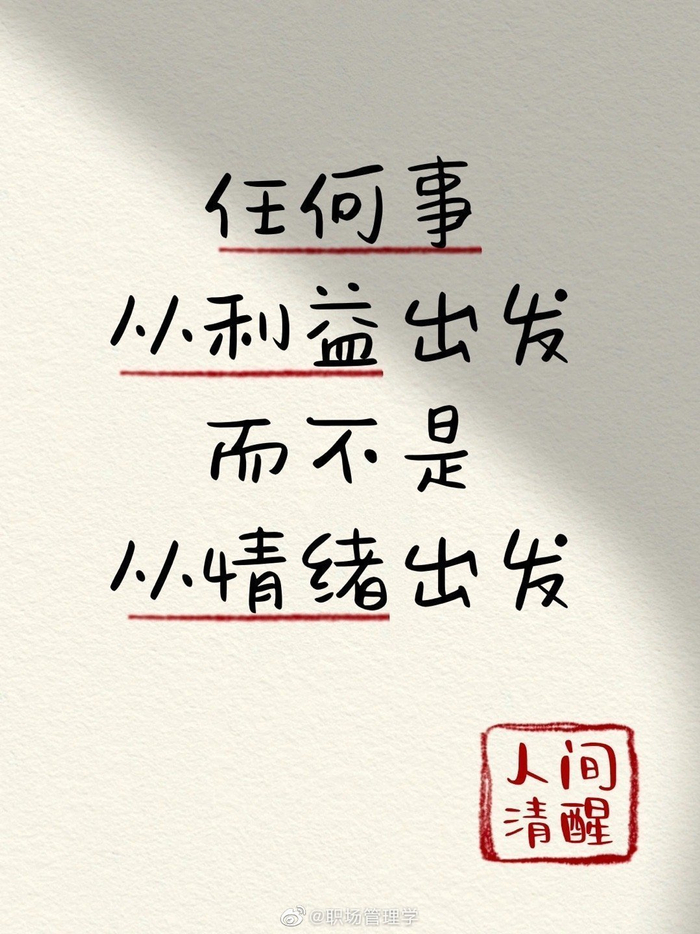 任何事
从利益出发
而不是
从情绪出发
人间
清醒
@职场管理学